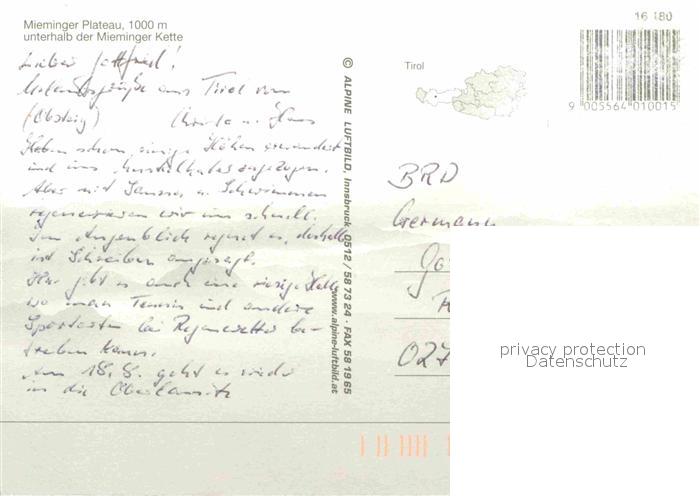 Mieminger Plateau, 1000 m
unterhalb der Mieminger Kette
Lieber Gottfried!
Urlaubsgrüße aus Tirol von
(Obsteig) Ursula u. Hans
Haben schon einige Höhen erwandert
und uns Muskelkater zugezogen.
Aber mit Sauna u. Schwimmen
regenerieren wir uns schnell.
Im Augenblick regnet es, deshalb
ist Schreiben angesagt.
Hier gibt es auch eine riesige Halle,
wo man Tennis und andere
Sportarten bei Regenwetter be-
treiben kann.
Am 18.8. geht es wieder
in die Oberlausitz
© ALPINE LUFTBILD, Innsbruck 0512 / 58 73 24 · FAX 58 19 65
www.alpine-luftbild.at
Tirol
16 180
9 005564 010015
BRD
Germany
027
privacy protection
Datenschutz